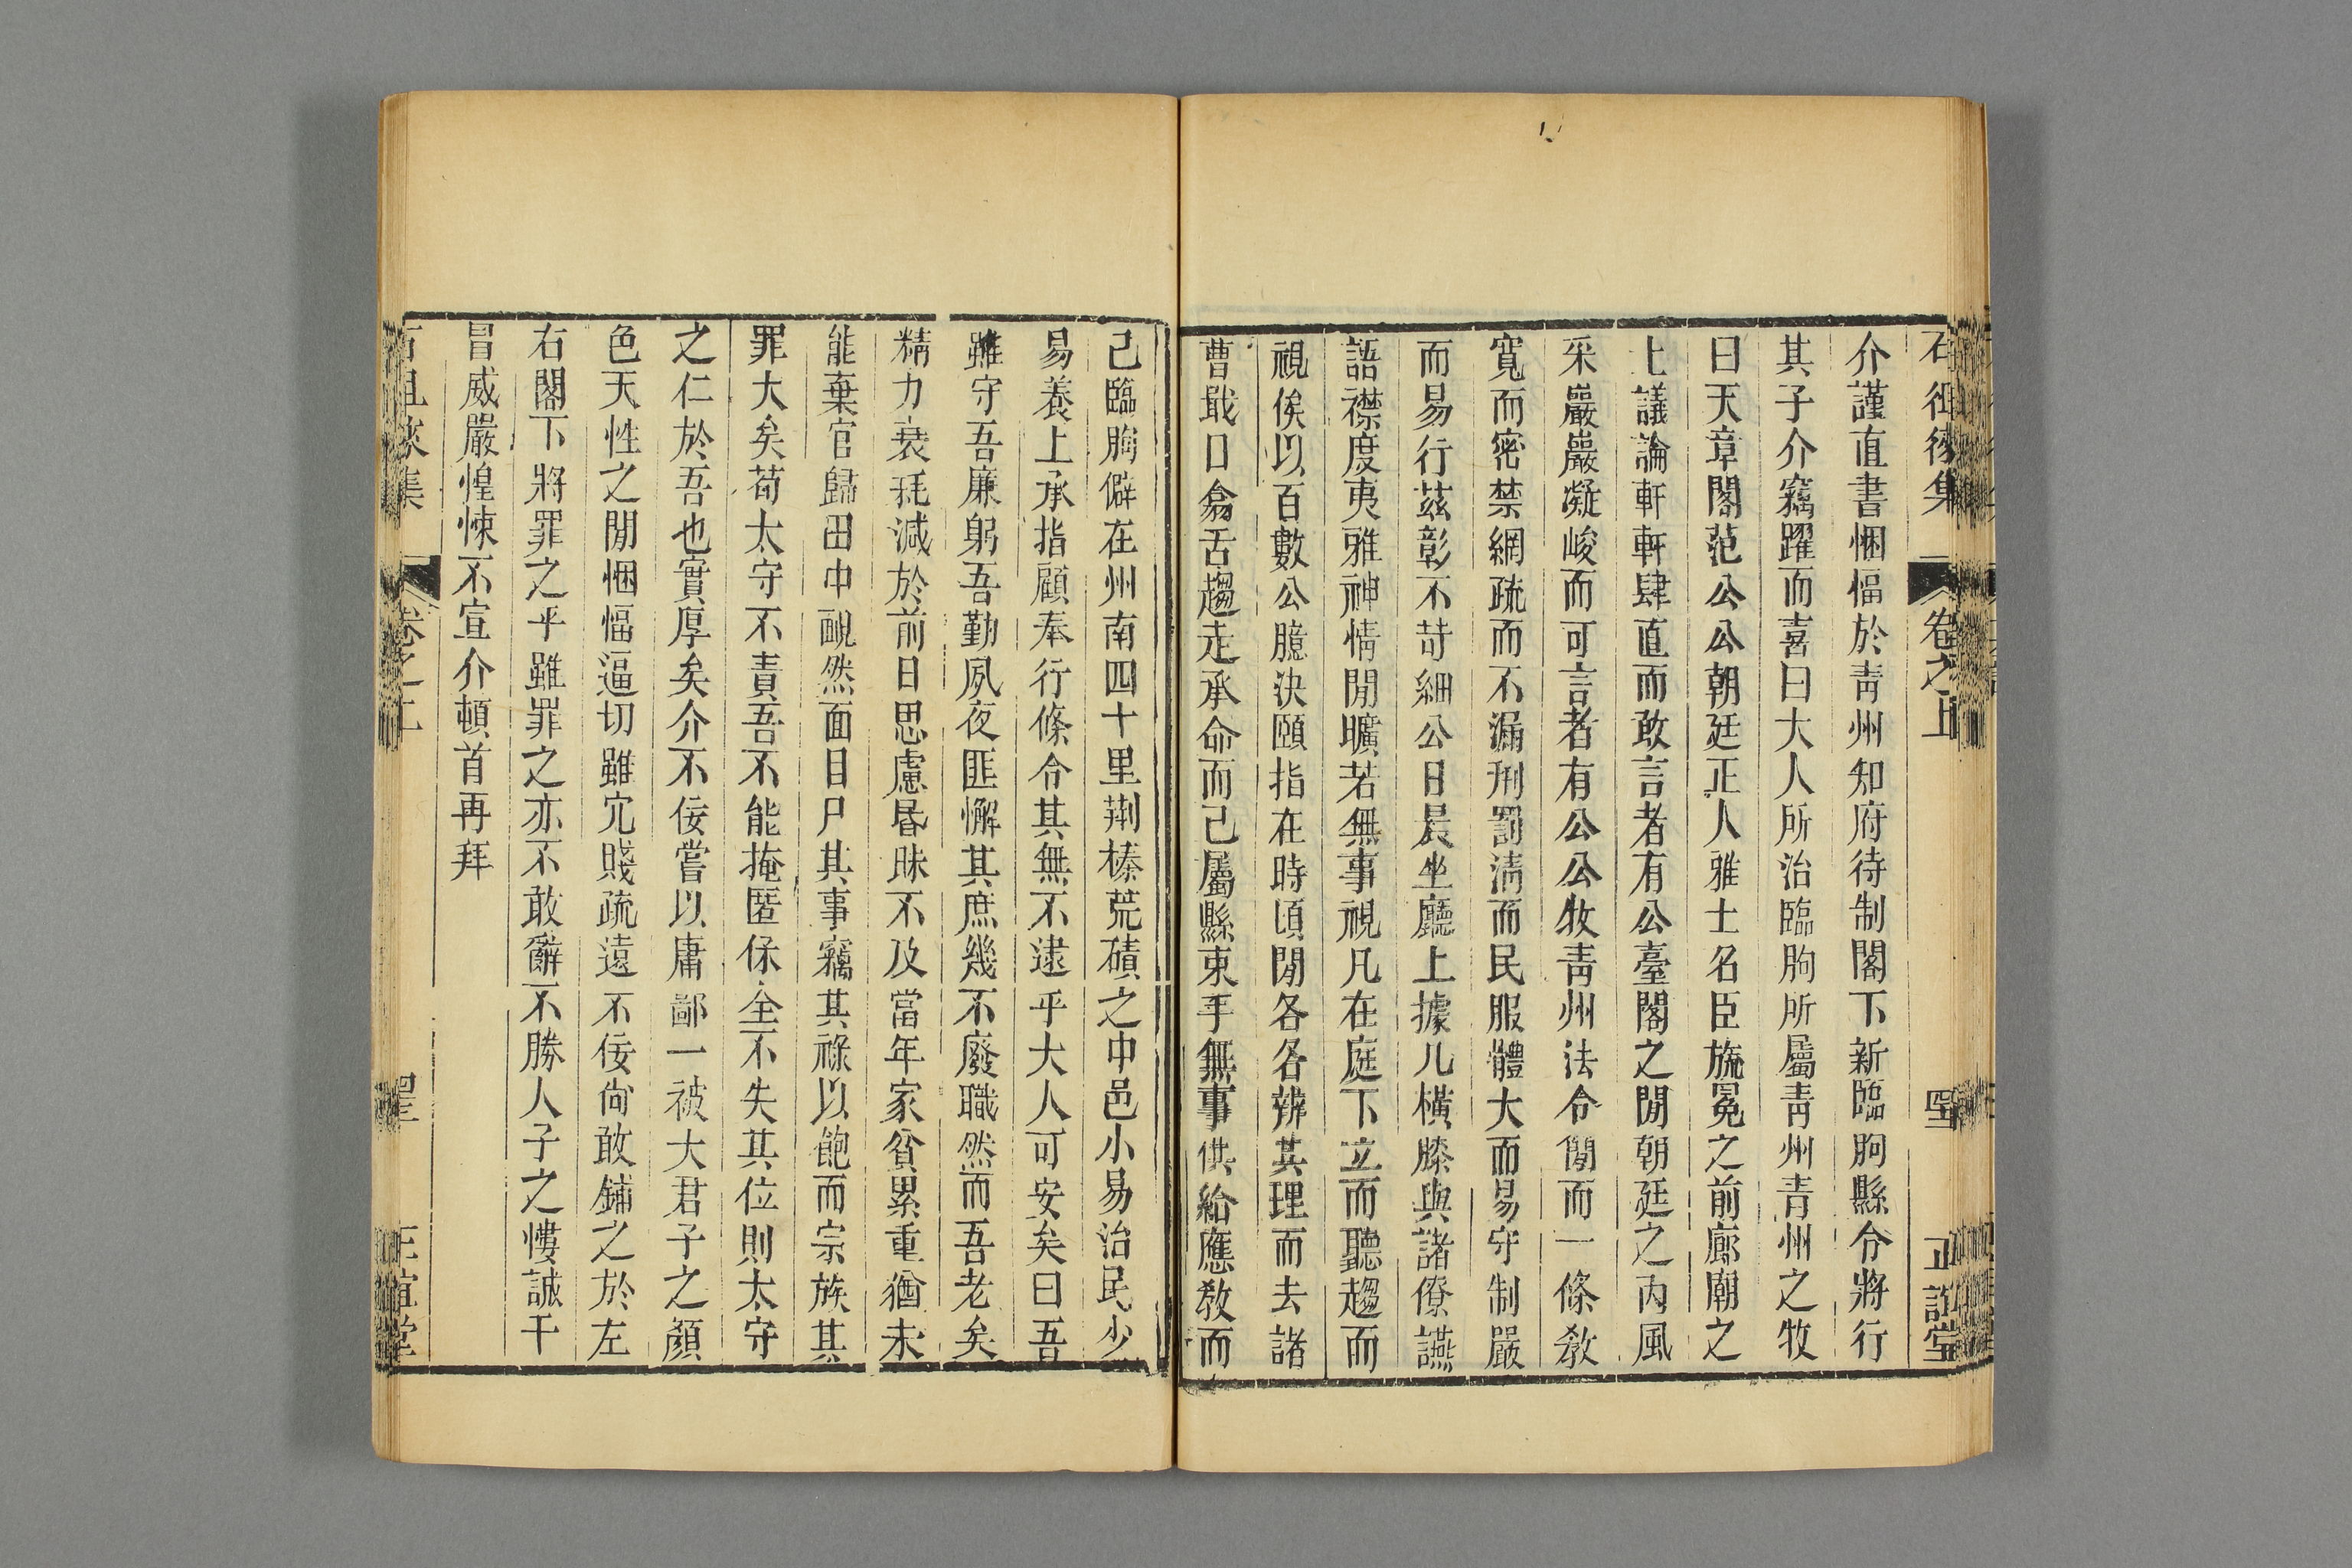 石徂徠集 卷之上 正誼堂
介謹直書悃愊於靑州知府待制閣下新臨朐縣令將行
其子介竊躍而喜曰大人所治臨朐所屬靑州靑州之牧
曰天章閣范公公朝廷正人雅士名臣旒冕之前廊廟之
上議論軒軒肆直而敢言者有公臺閣之閒朝廷之內風
采嚴嚴凝峻而可言者有公公牧靑州法令簡而一條敎
寬而密禁網疏而不漏刑罰淸而民服體大而易守制嚴
而易行茲彰不苛細公日晨坐廳上據几橫膝與諸僚讌
語襟度夷雅神情閒曠若無事視凡在庭下立而聽趨而
視俟以百數公臆決頤指在時頃閒各各辨其理而去諸
曹戢口翕舌趨走承命而己屬縣束手無事供給應敎而
己臨朐僻在州南四十里荆榛荒磧之中邑小易治民少
易養上承指顧奉行條令其無不逮乎大人可安矣曰吾
雖守吾廉躬吾勤夙夜匪懈其庶幾不廢職然而吾老矣
精力衰耗減於前日思慮昬昧不及當年家貧累重猶未
能棄官歸田中靦然面目尸其事竊其祿以飽而宗族其
罪大矣苟太守不責吾不能掩匿保全不失其位則太守
之仁於吾也實厚矣介不佞嘗以庸鄙一被大君子之顏
色天性之閒悃愊逼切雖冗賤疏遠不佞尙敢鋪之於左
右閣下將罪之乎雖罪之亦不敢辭不勝人子之慺誠干
冒威嚴惶悚不宣介頓首再拜
卷之上